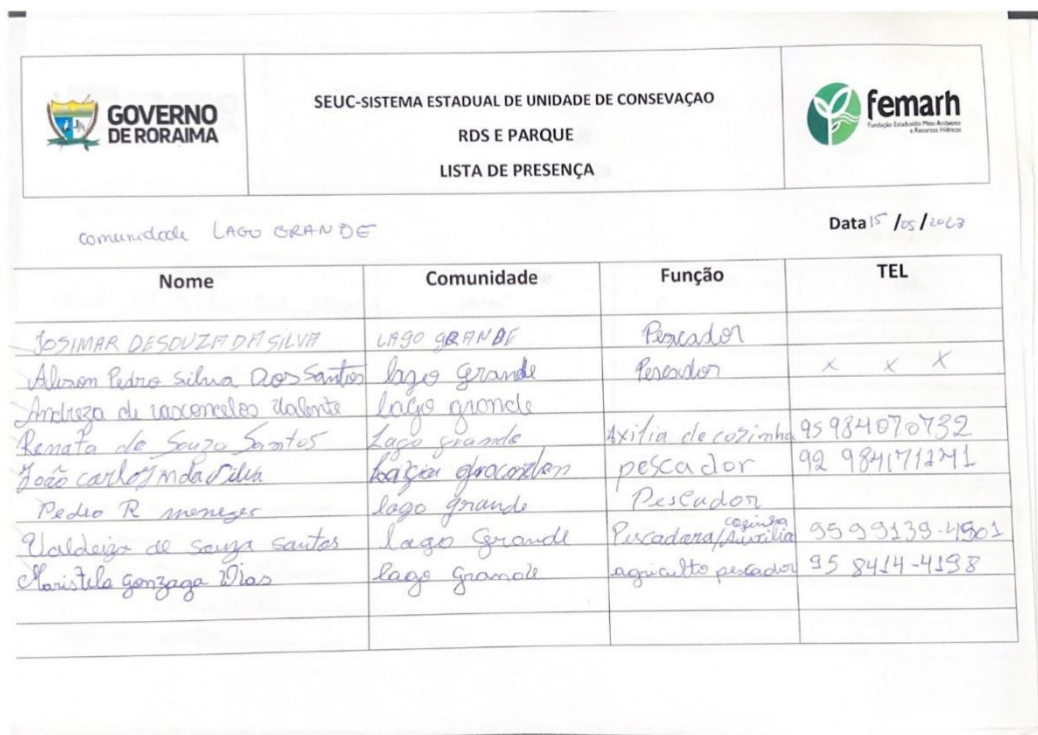 GOVERNO
DE RORAIMA
SEUC-SISTEMA ESTADUAL DE UNIDADE DE CONSEVAÇAO
RDS E PARQUE
LISTA DE PRESENÇA
femarh
Fundação Estadual do Meio Ambiente
e Recursos Hídricos
comunidade LAGO GRANDE
Data 15 /05/2023
Nome Comunidade Função TEL
JOSIMAR DE SOUZA DA SILVA LAGO GRANDE Pescador
Alison Pedro Silva Dos Santos lago Grande Pescador X X X
Andreza de vasconcelos Valente lago grande
Renata de Souza Santos Lago grande Axilia de cozinha 95 984070732
João carlos da Silva pescador
Pedro R meneses lago grande Pescador
Valdeiza de Souza santos lago Grande Pescadora/Auxilia cozinha 95 99139-4901
Maristela Gonzaga Dias lago Grande agriculto pescador 95 8414-4198